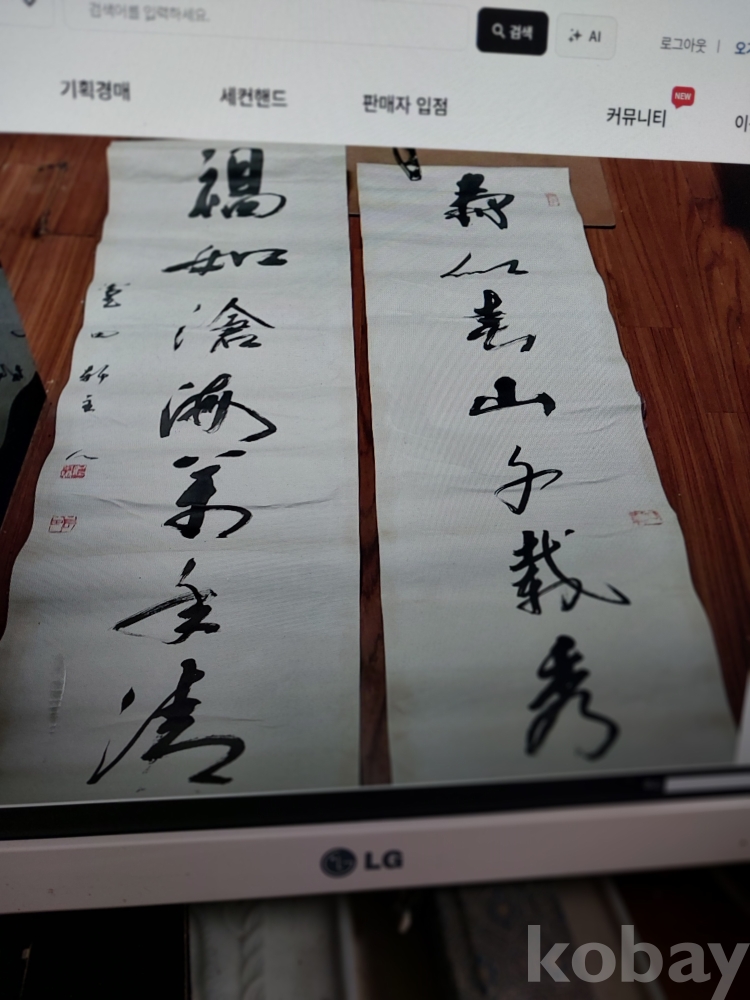 검색어를 입력하세요. 검색 AI 로그아웃 |
기획경매 세컨핸드 판매자 입점 커뮤니티 NEW
壽似春山千載秀
福如滄海萬年清
主人
LG
kobay